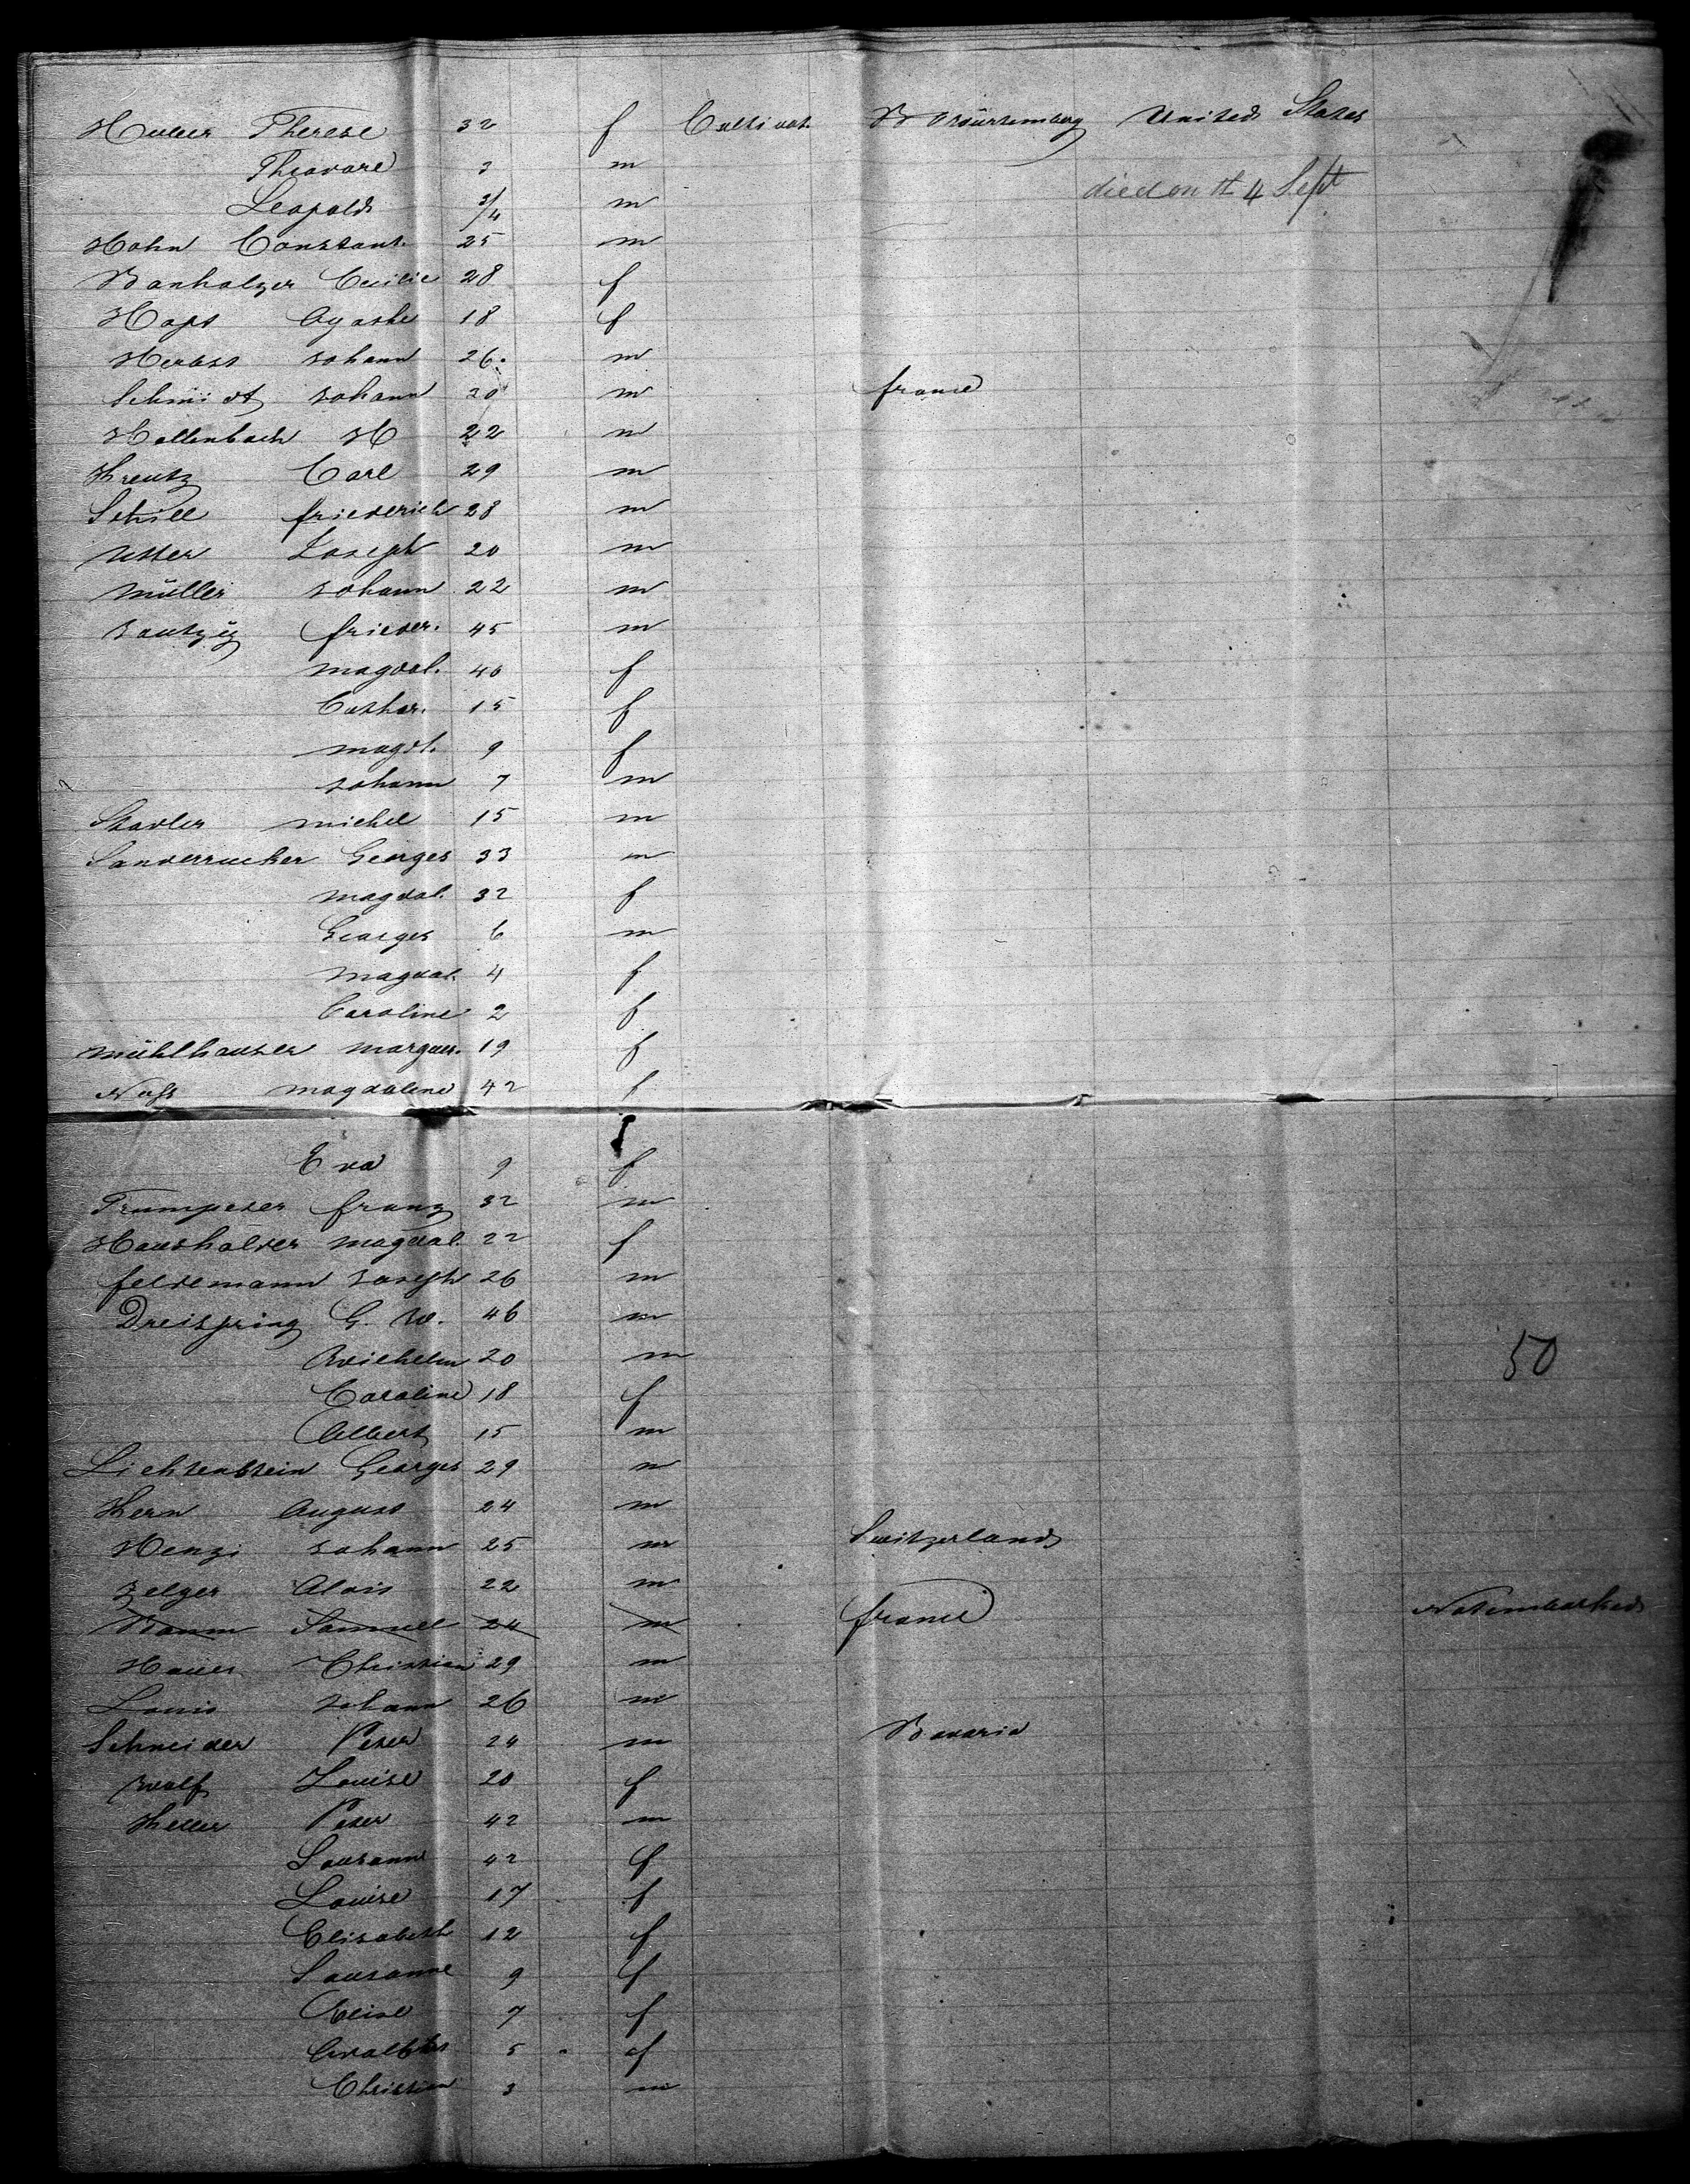 Huber Therese 32 f Cultivat. Würtemberg United States
Theodore 3 m
Leopold 3/4 m died on th 4 Sept
Hohn Constant. 25 m
Banholzer Cecilie 28 f
Hops Agathe 18 f
Herbst Johann 26. m
Schmidt Johann 20 m france
Hollenbach H 22 m
Kreutz Carl 29 m
Schill friederich 28 m
Utter Joseph 20 m
Müller Johann 22 m
Jautzy frieder. 45 m
magdal. 40 f
Cathar. 15 f
magd. 9 f
Johann 7 m
Stadler michel 15 m
Sanderrucker Georges 33 m
magdal. 32 f
Georges 6 m
magdal. 4 f
Caroline 2 f
Mühlhauser margar. 19 f
magdalene 42 f
Eva 9 f
Trumpeter franz 32 m
Haushalter magdal. 22 f
feldemann Joseph 26 m
Dreispring G. W. 46 m
Wilhelm 20 m 50
Caroline 18 f
Albert 15 m
Lichtenstein Georges 29 m
Kern August 24 m
Henzi Johann 25 m Switzerland
Zelger Alois 22 m
Baum Samuel 24 m france Not embarked
Hauer Christian 29 m
Louis Johann 26 m
Schneider Peter 24 m Bavaria
Wolf Louise 20 f
Keller Peter 42 m
Sousanne 42 f
Louise 17 f
Elisabeth 12 f
Sousanne 9 f
Elise 7 f
5 f
Christian 3 m